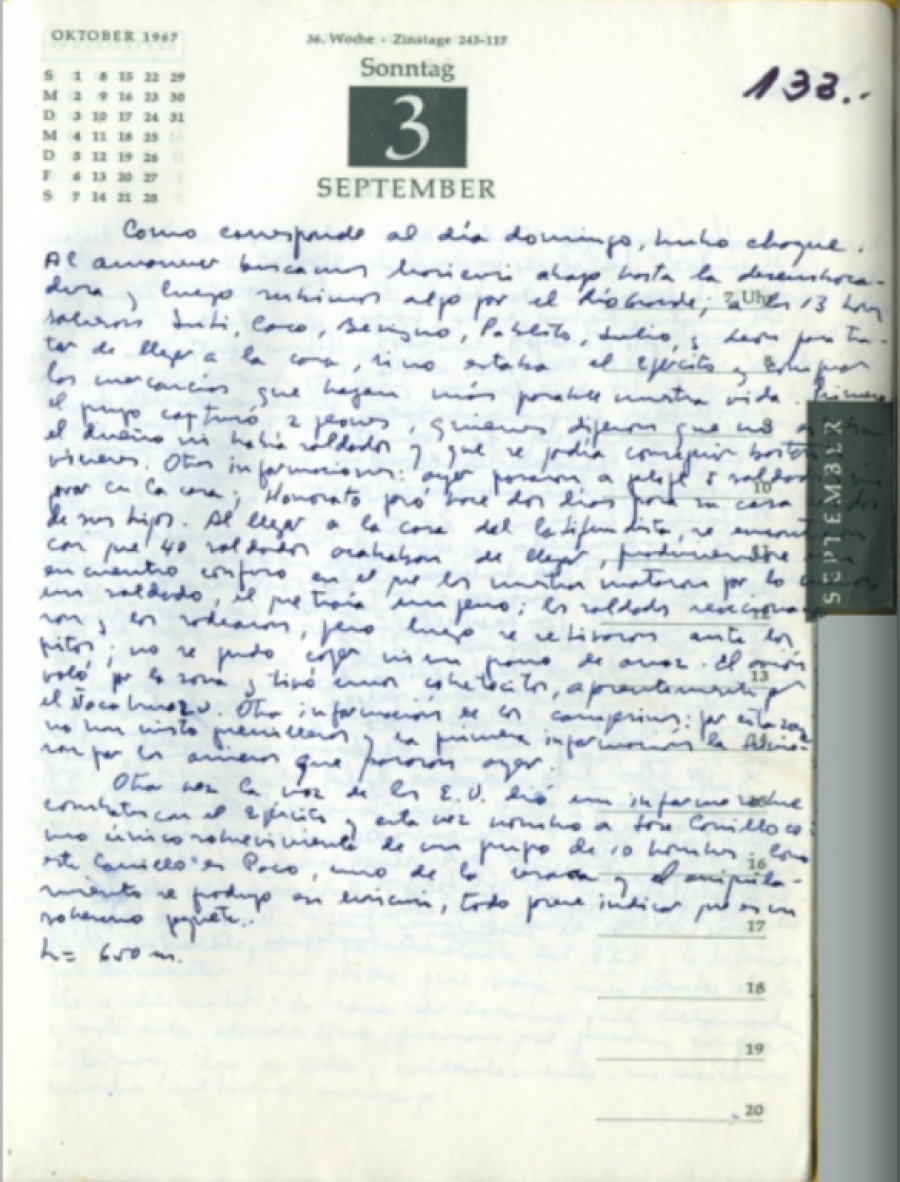 OKTOBER 1967
S 1 8 15 22 29
M 2 9 16 23 30
D 3 10 17 24 31
M 4 11 18 25
D 5 12 19 26
F 6 13 20 27
S 7 14 21 28
36. Woche - Zinstage 243-117
Sonntag
3
SEPTEMBER
133..
Como corresponde al día domingo, hubo choque.
Al amanecer buscamos Masicuri abajo hasta la desemboca-
dura y luego subimos algo por el Río Grande; a las 13 hrs
salieron Inti, Coco, Benigno, Pablito, Julio, y León para tra-
tar de llegar a la casa, si no estaba el ejército y comprar
las mercancías que hagan más pasable nuestra vida. Primero
el grupo capturó 2 peones, quienes dijeron que no
el dueño ni había soldados y que se podía conseguir bastantes
víveres. Otras informaciones: ayer pasaron a galope 5 soldados sin
parar en la casa; Honorato pasó hace dos días para su casa dos
de sus hijos. Al llegar a la casa del latifundista, se
con que 40 soldados acababan de llegar, produciéndose un
encuentro confuso en el que los nuestros mataron por lo menos
un soldado, el que traía un perro; los soldados reacciona-
ron y los rodearon, pero luego se retiraron ante los
gritos; no se pudo coger ni un grano de arroz. El avión
voló por la zona y tiró unos cohetecitos, aparentemente por
el Ñacahuazu. Otra información de los campesinos: por esta zona
no han visto guerrilleros y la primera información la tuvie-
ron por los arrieros que pasaron ayer.
Otra vez la voz de los E.U. dió un informe sobre
combates con el Ejército y esta vez nombró a José Carrillo co-
mo único sobreviviente de un grupo de 10 hombres. Como
este Carrillo es Paco, uno de la resaca y el aniquila-
miento se produjo en Masicuri, todo parece indicar que es un
h= 650 m.
7 Uhr
8
9
10
11
12
13
14
15
16
17
18
19
20
SEPTEMBER